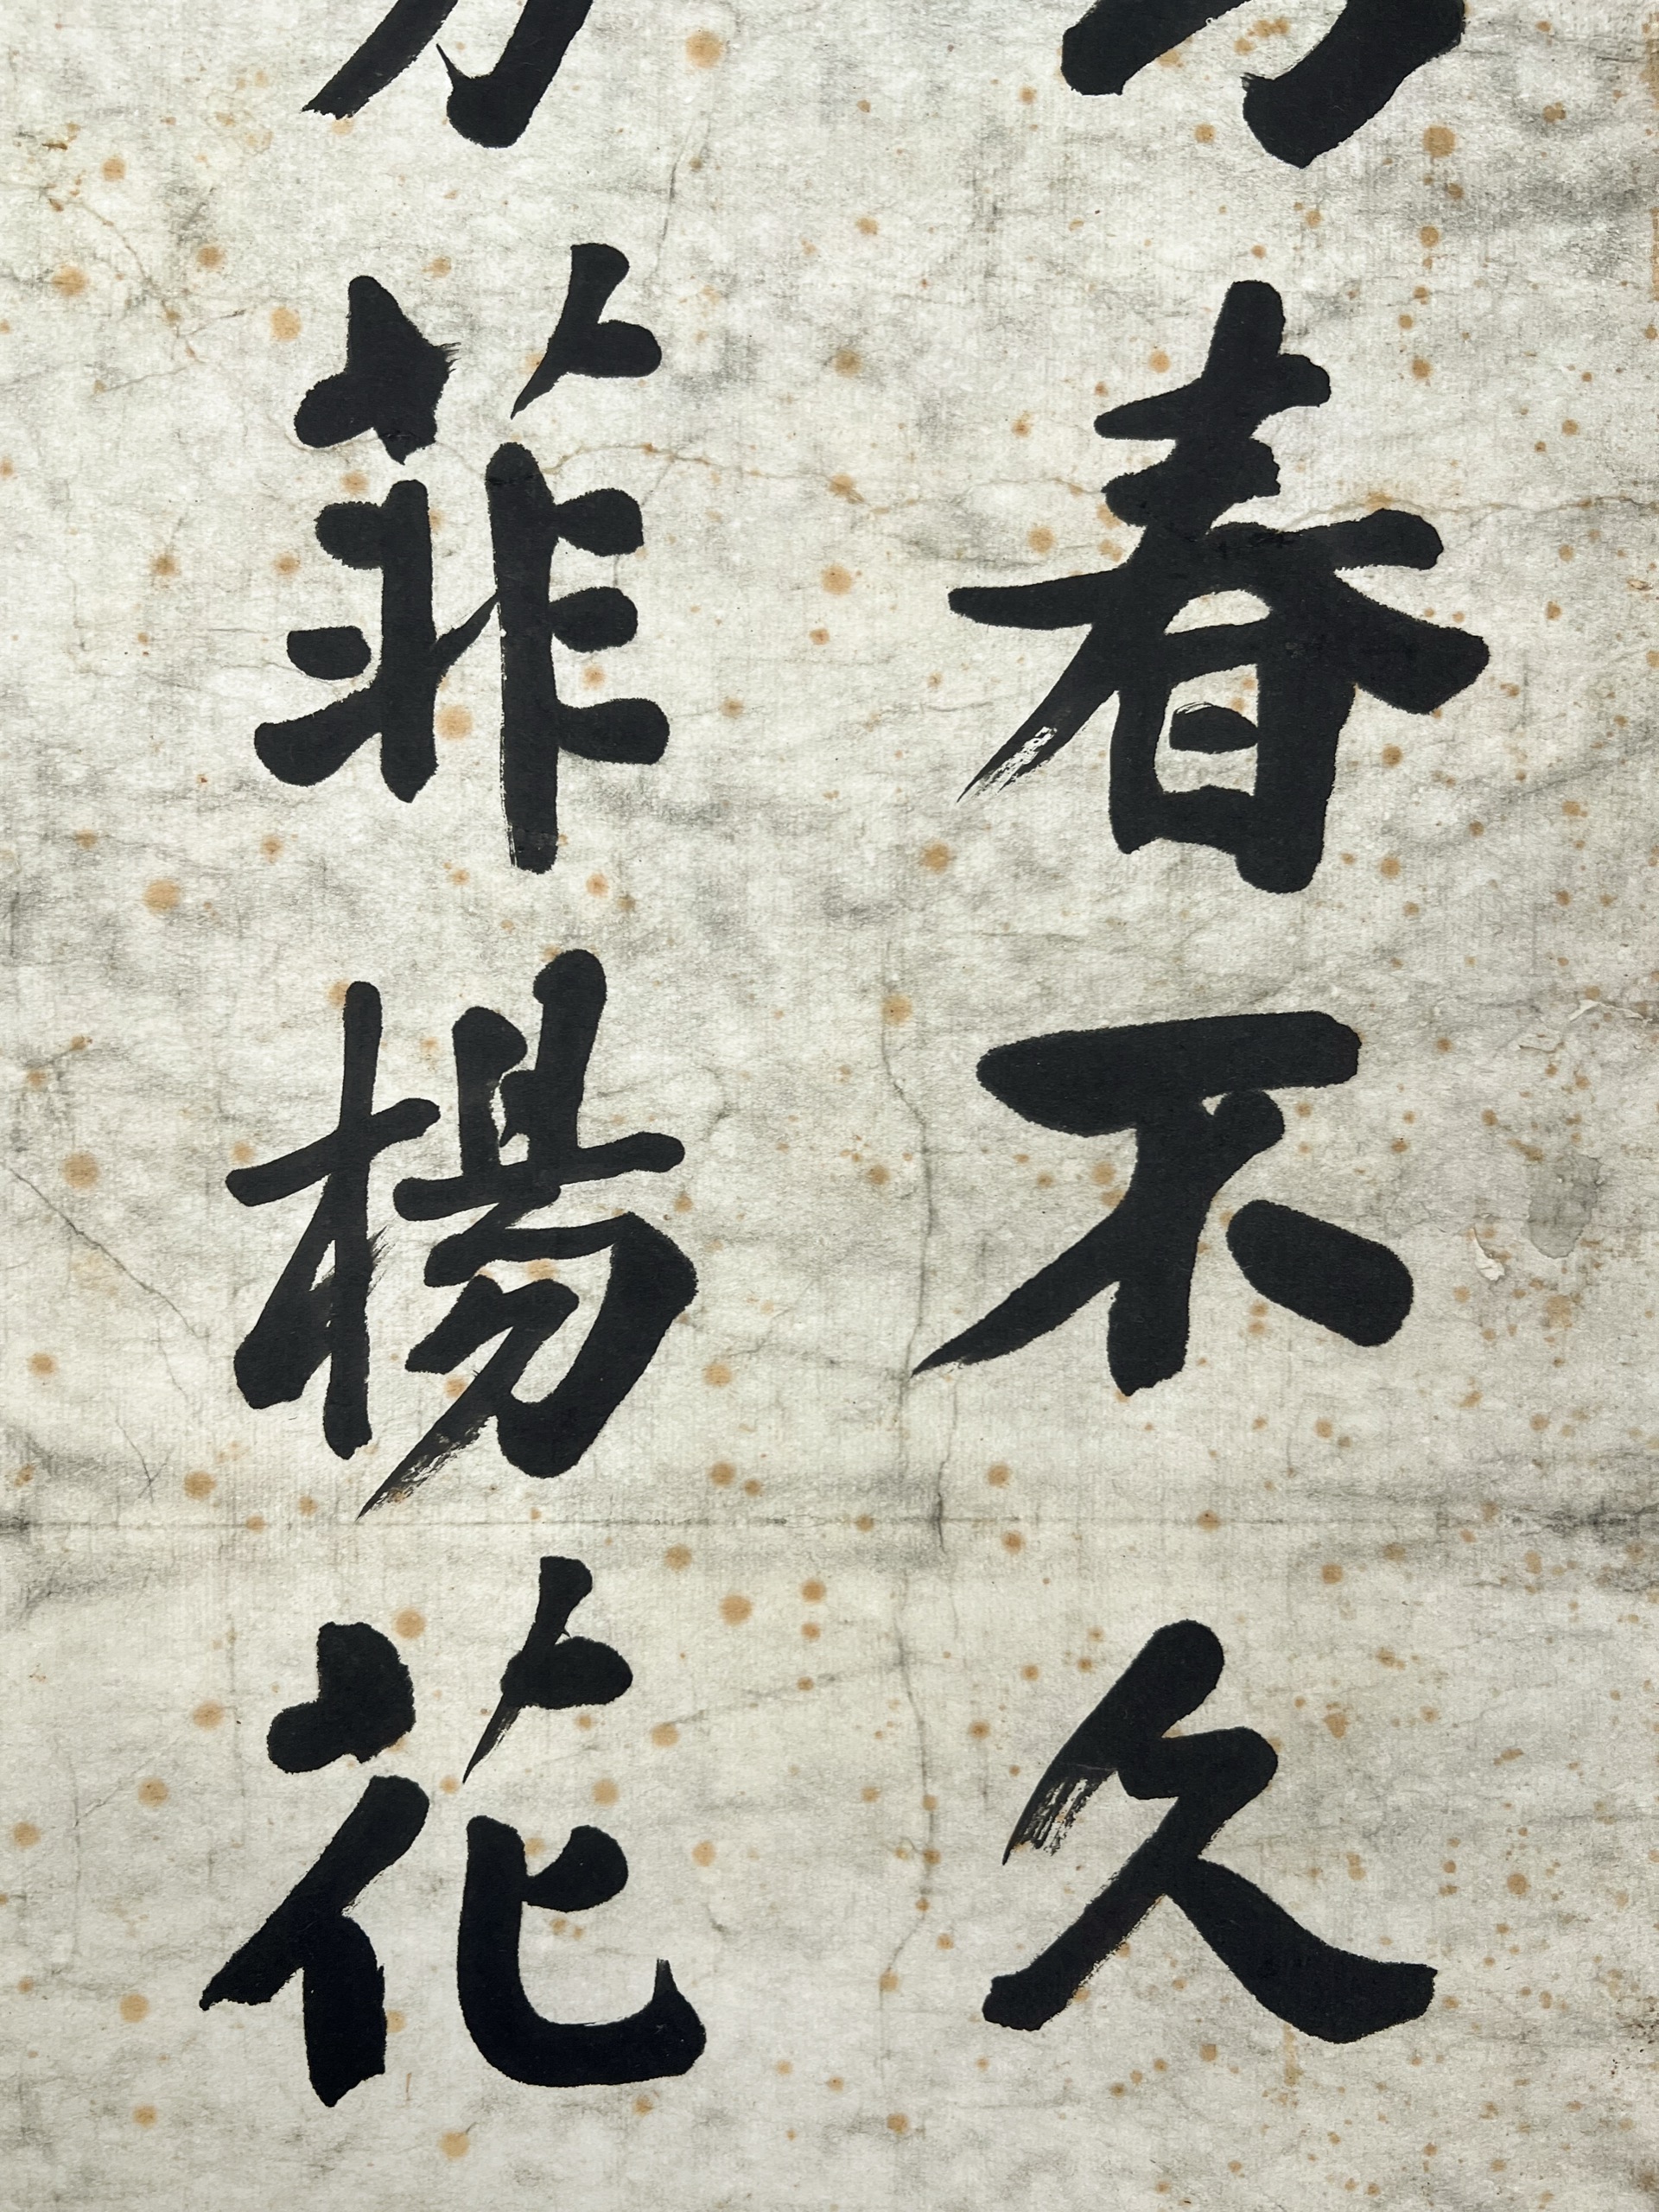 春不久
菲楊花